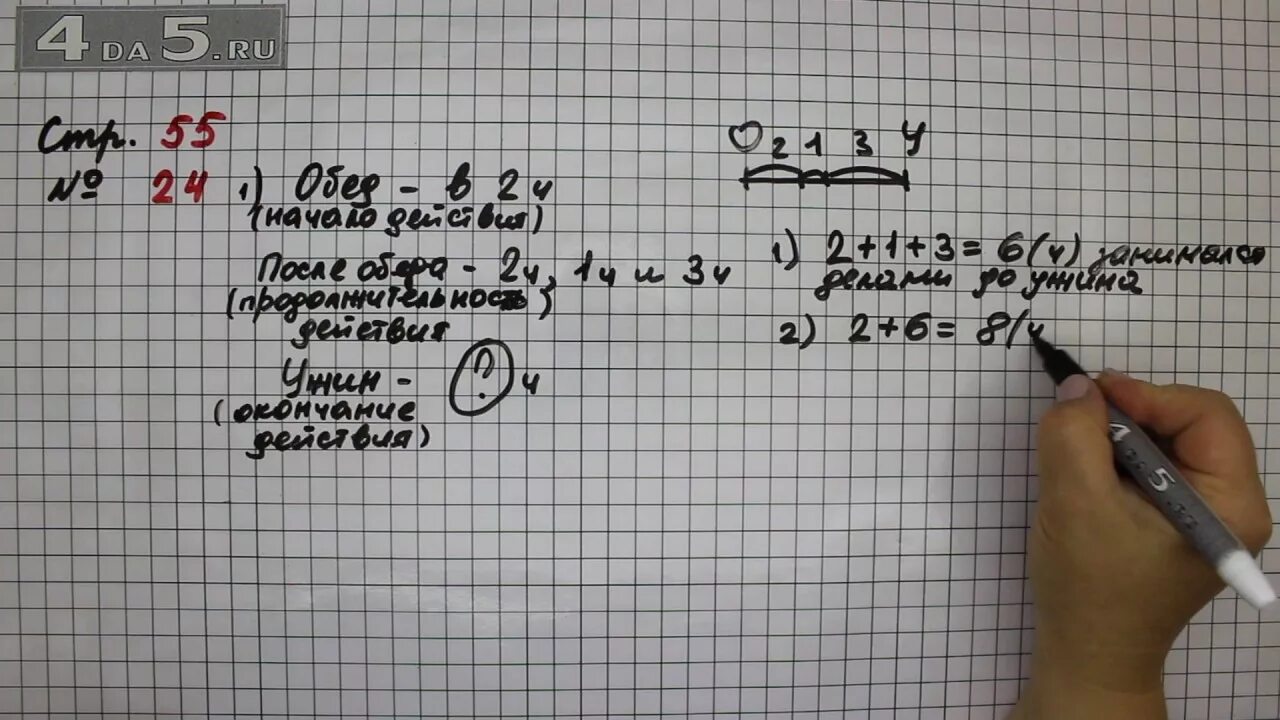 4DA5.RU
Стр. 55
№ 24
1) Обед - в 2ч
(начало действия)
После обеда - 2ч, 1ч и 3ч
(продолжительность
действия)
Ужин - ? ч
(окончание
действия)
О 2 1 3 У
1) 2+1+3= 6(ч) занимался
делами до ужина
2) 2+6= 8(ч
4DA5.RU